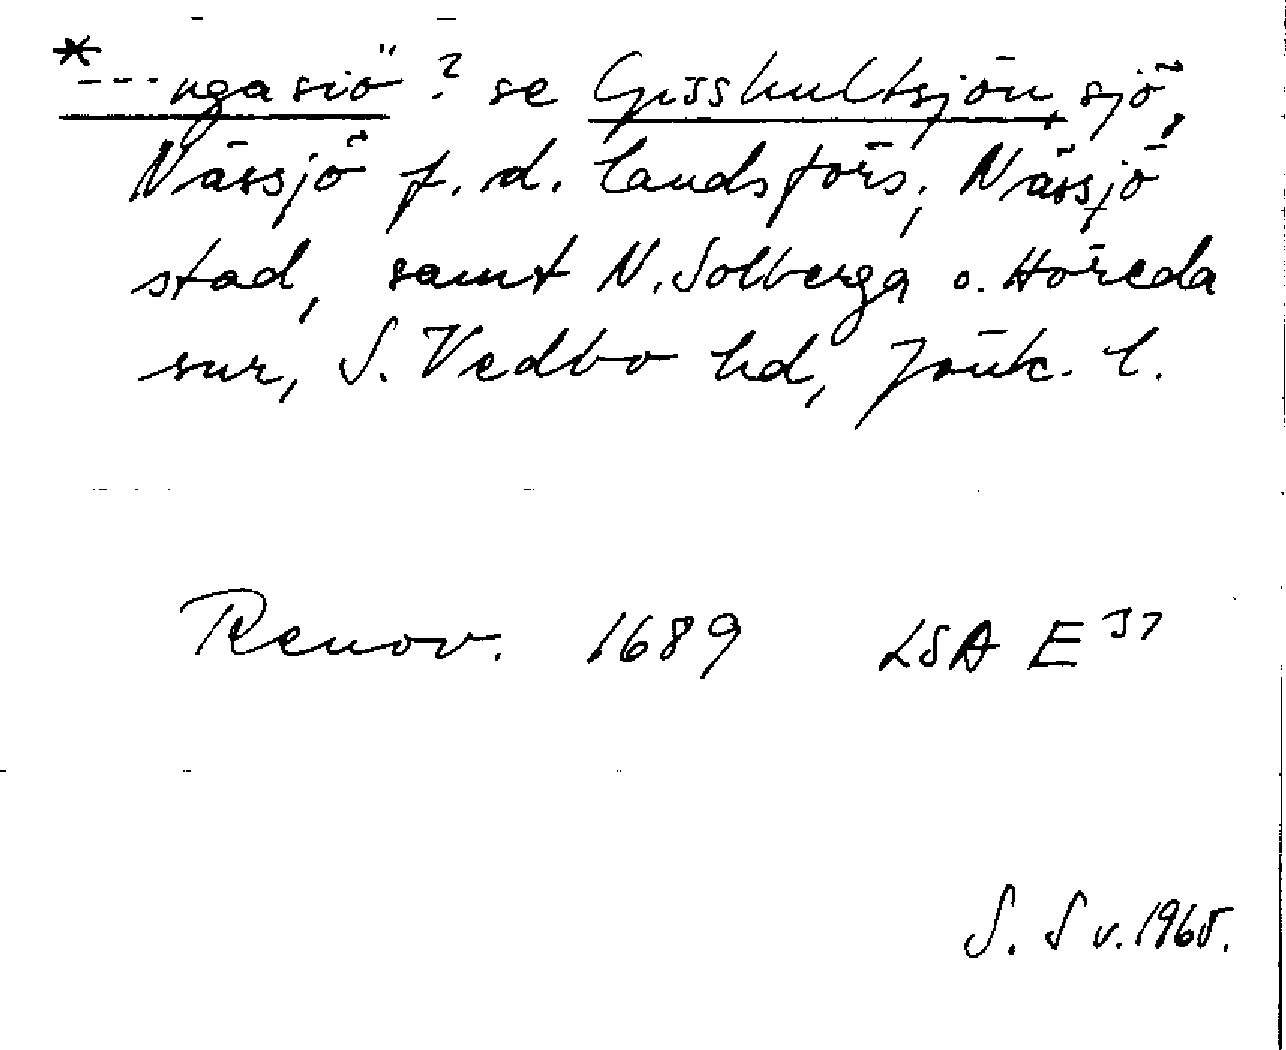 *---ngasiö? se Gisshultsjön, sjö,
Nässjö f.d. landsförs., Nässjö
stad, samt N. Solberga o. Höreda
snr, S. Vedbo hd, Jönk. l.
Renov. 1689 LSA E 37
S. Sv. 1965.